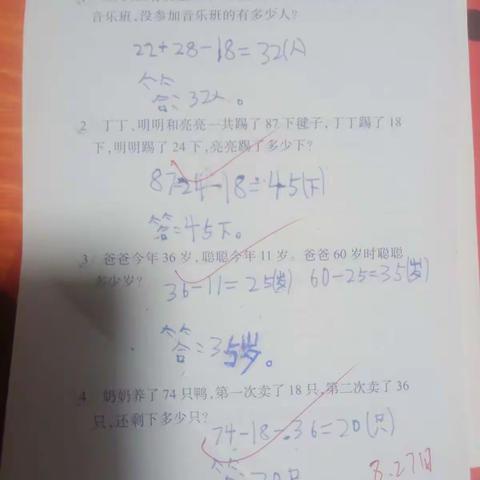 音乐班，没参加音乐班的有多少人？
22+28-18=32(人)
答：32人。
2 丁丁、明明和亮亮一共踢了 87 下毽子，丁丁踢了 18
下，明明踢了 24 下，亮亮踢了多少下？
87-24-18=45(下)
答=45下。
3 爸爸今年 36 岁，聪聪今年 11 岁。爸爸 60 岁时聪聪
多少岁？
36-11=25(岁) 60-25=35(岁)
答=35岁。
4 奶奶养了 74 只鸭，第一次卖了 18 只，第二次卖了 36
只，还剩下多少只？
74-18-36=20(只)
答=20只
8.27日